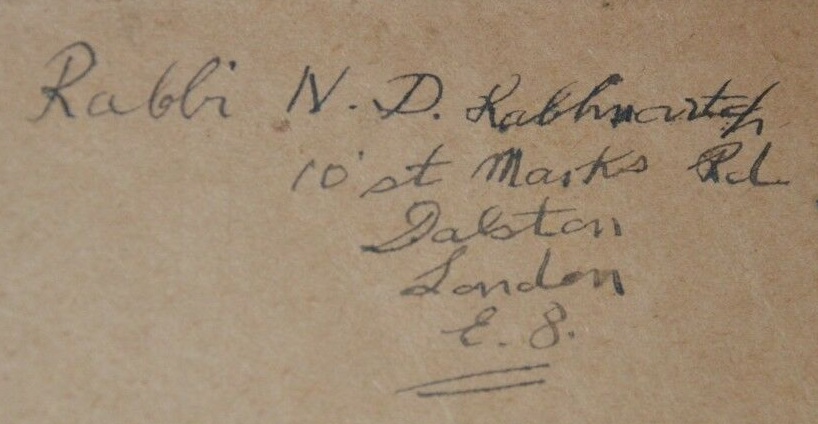 Rabbi N. D.
10 st Marks Rd
Dalston
London
E. 8.